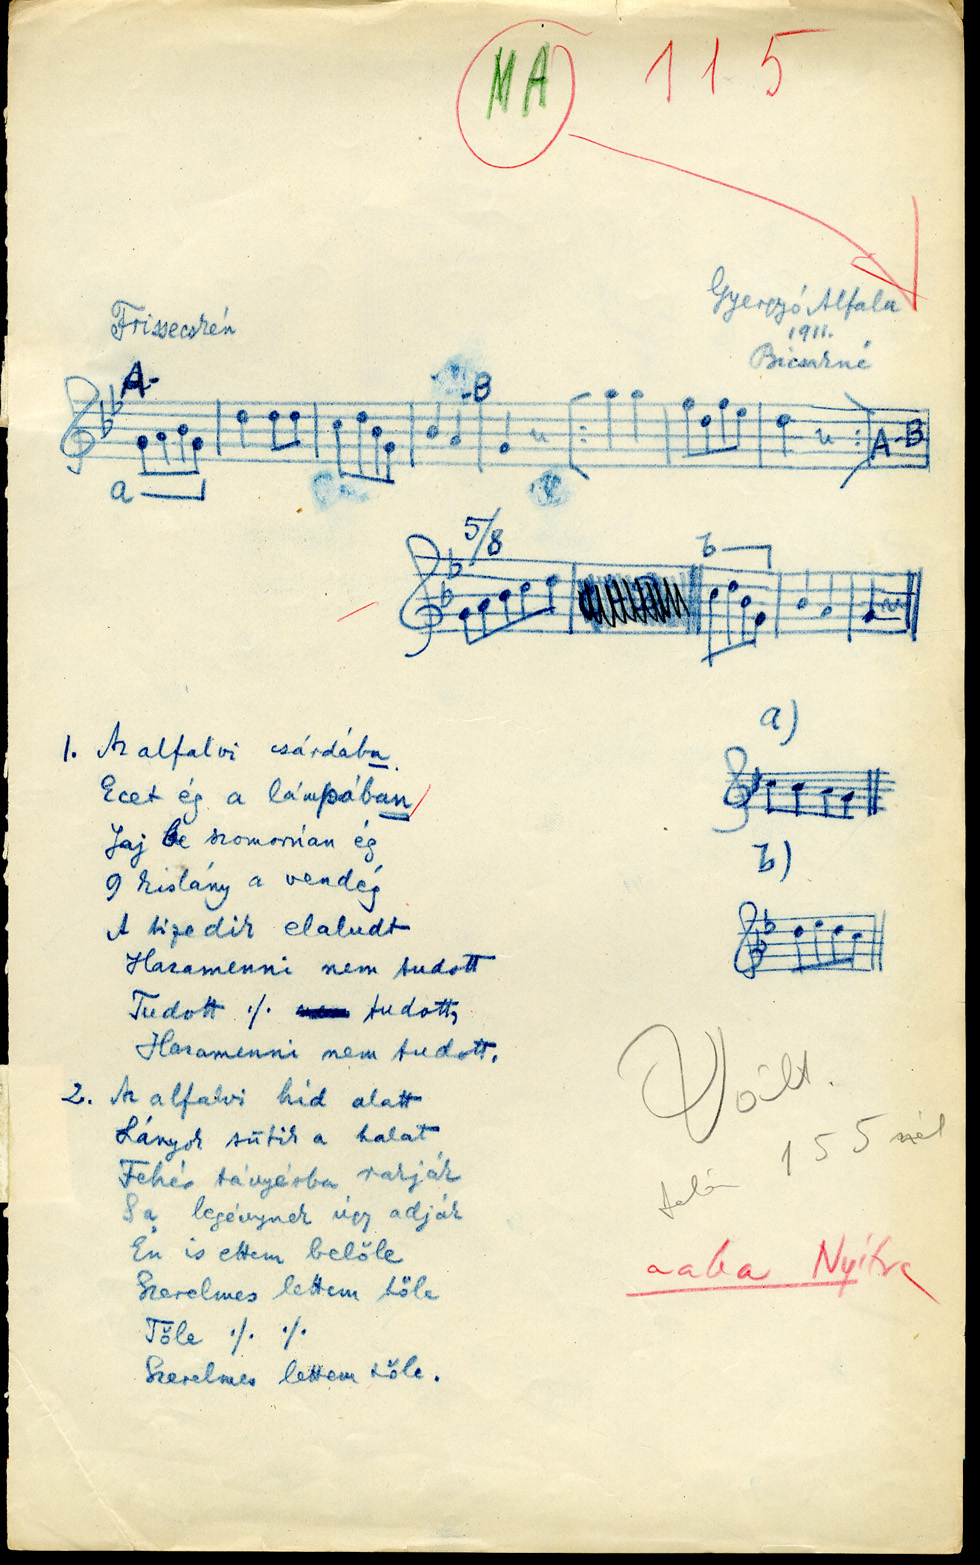 MA 115
Frissecskén
Gyergyó Alfalu
1911.
Bicsakné
A-
-B
A-B
a
5/8
b
1. Az alfalvi csárdában
Ecet ég a lámpában
Jaj be szomorúan ég
9 kislány a vendég
A tizedik elaludt
Hazamenni nem tudott
Tudott ./. tudott,
Hazamenni nem tudott.
2. Az alfalvi híd alatt
Lányok sütik a halat
Fehér tányérba rakják
S a legénynek úgy adják
Én is ettem belőle
Szerelmes lettem tőle
Tőle ./. ./.
Szerelmes lettem tőle.
a)
b)
Vólt.
talán 155
aaba Nyitra